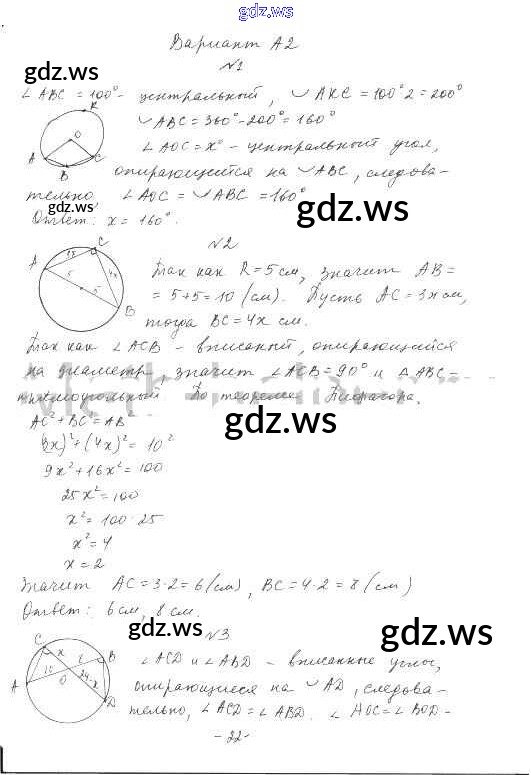 gdz.ws
Вариант А2
gdz.ws
№1
∠ABC = 100° - центральный, ◡AKC = 100°·2 = 200°
◡ABC = 360° - 200° = 160°
∠AOC = x° - центральный угол,
опирающийся на ◡ABC, следова-
тельно, ∠AOC = ◡ABC = 160°
Ответ: x = 160°.
gdz.ws
gdz.ws
№2
Так как R = 5 см, значит AB =
= 5+5 = 10 (см). Пусть AC = 3x см,
тогда BC = 4x см.
Так как ∠ACB - вписанный, опирающийся
на диаметр, значит ∠ACB = 90° и △ABC -
прямоугольный. По теореме Пифагора.
AC² + BC = AB
gdz.ws
(3x)² + (4x)² = 10²
9x² + 16x² = 100
25x² = 100
x² = 100 · 25
x² = 4
x = 2
Значит AC = 3·2 = 6 (см), BC = 4·2 = 8 (см)
Ответ: 6 см, 8 см.
gdz.ws
gdz.ws
№3
∠ACD и ∠ABD - вписанные углы,
опирающиеся на ◡AD, следова-
тельно, ∠ACD = ∠ABD. ∠AOC = ∠BOD -
- 22 -